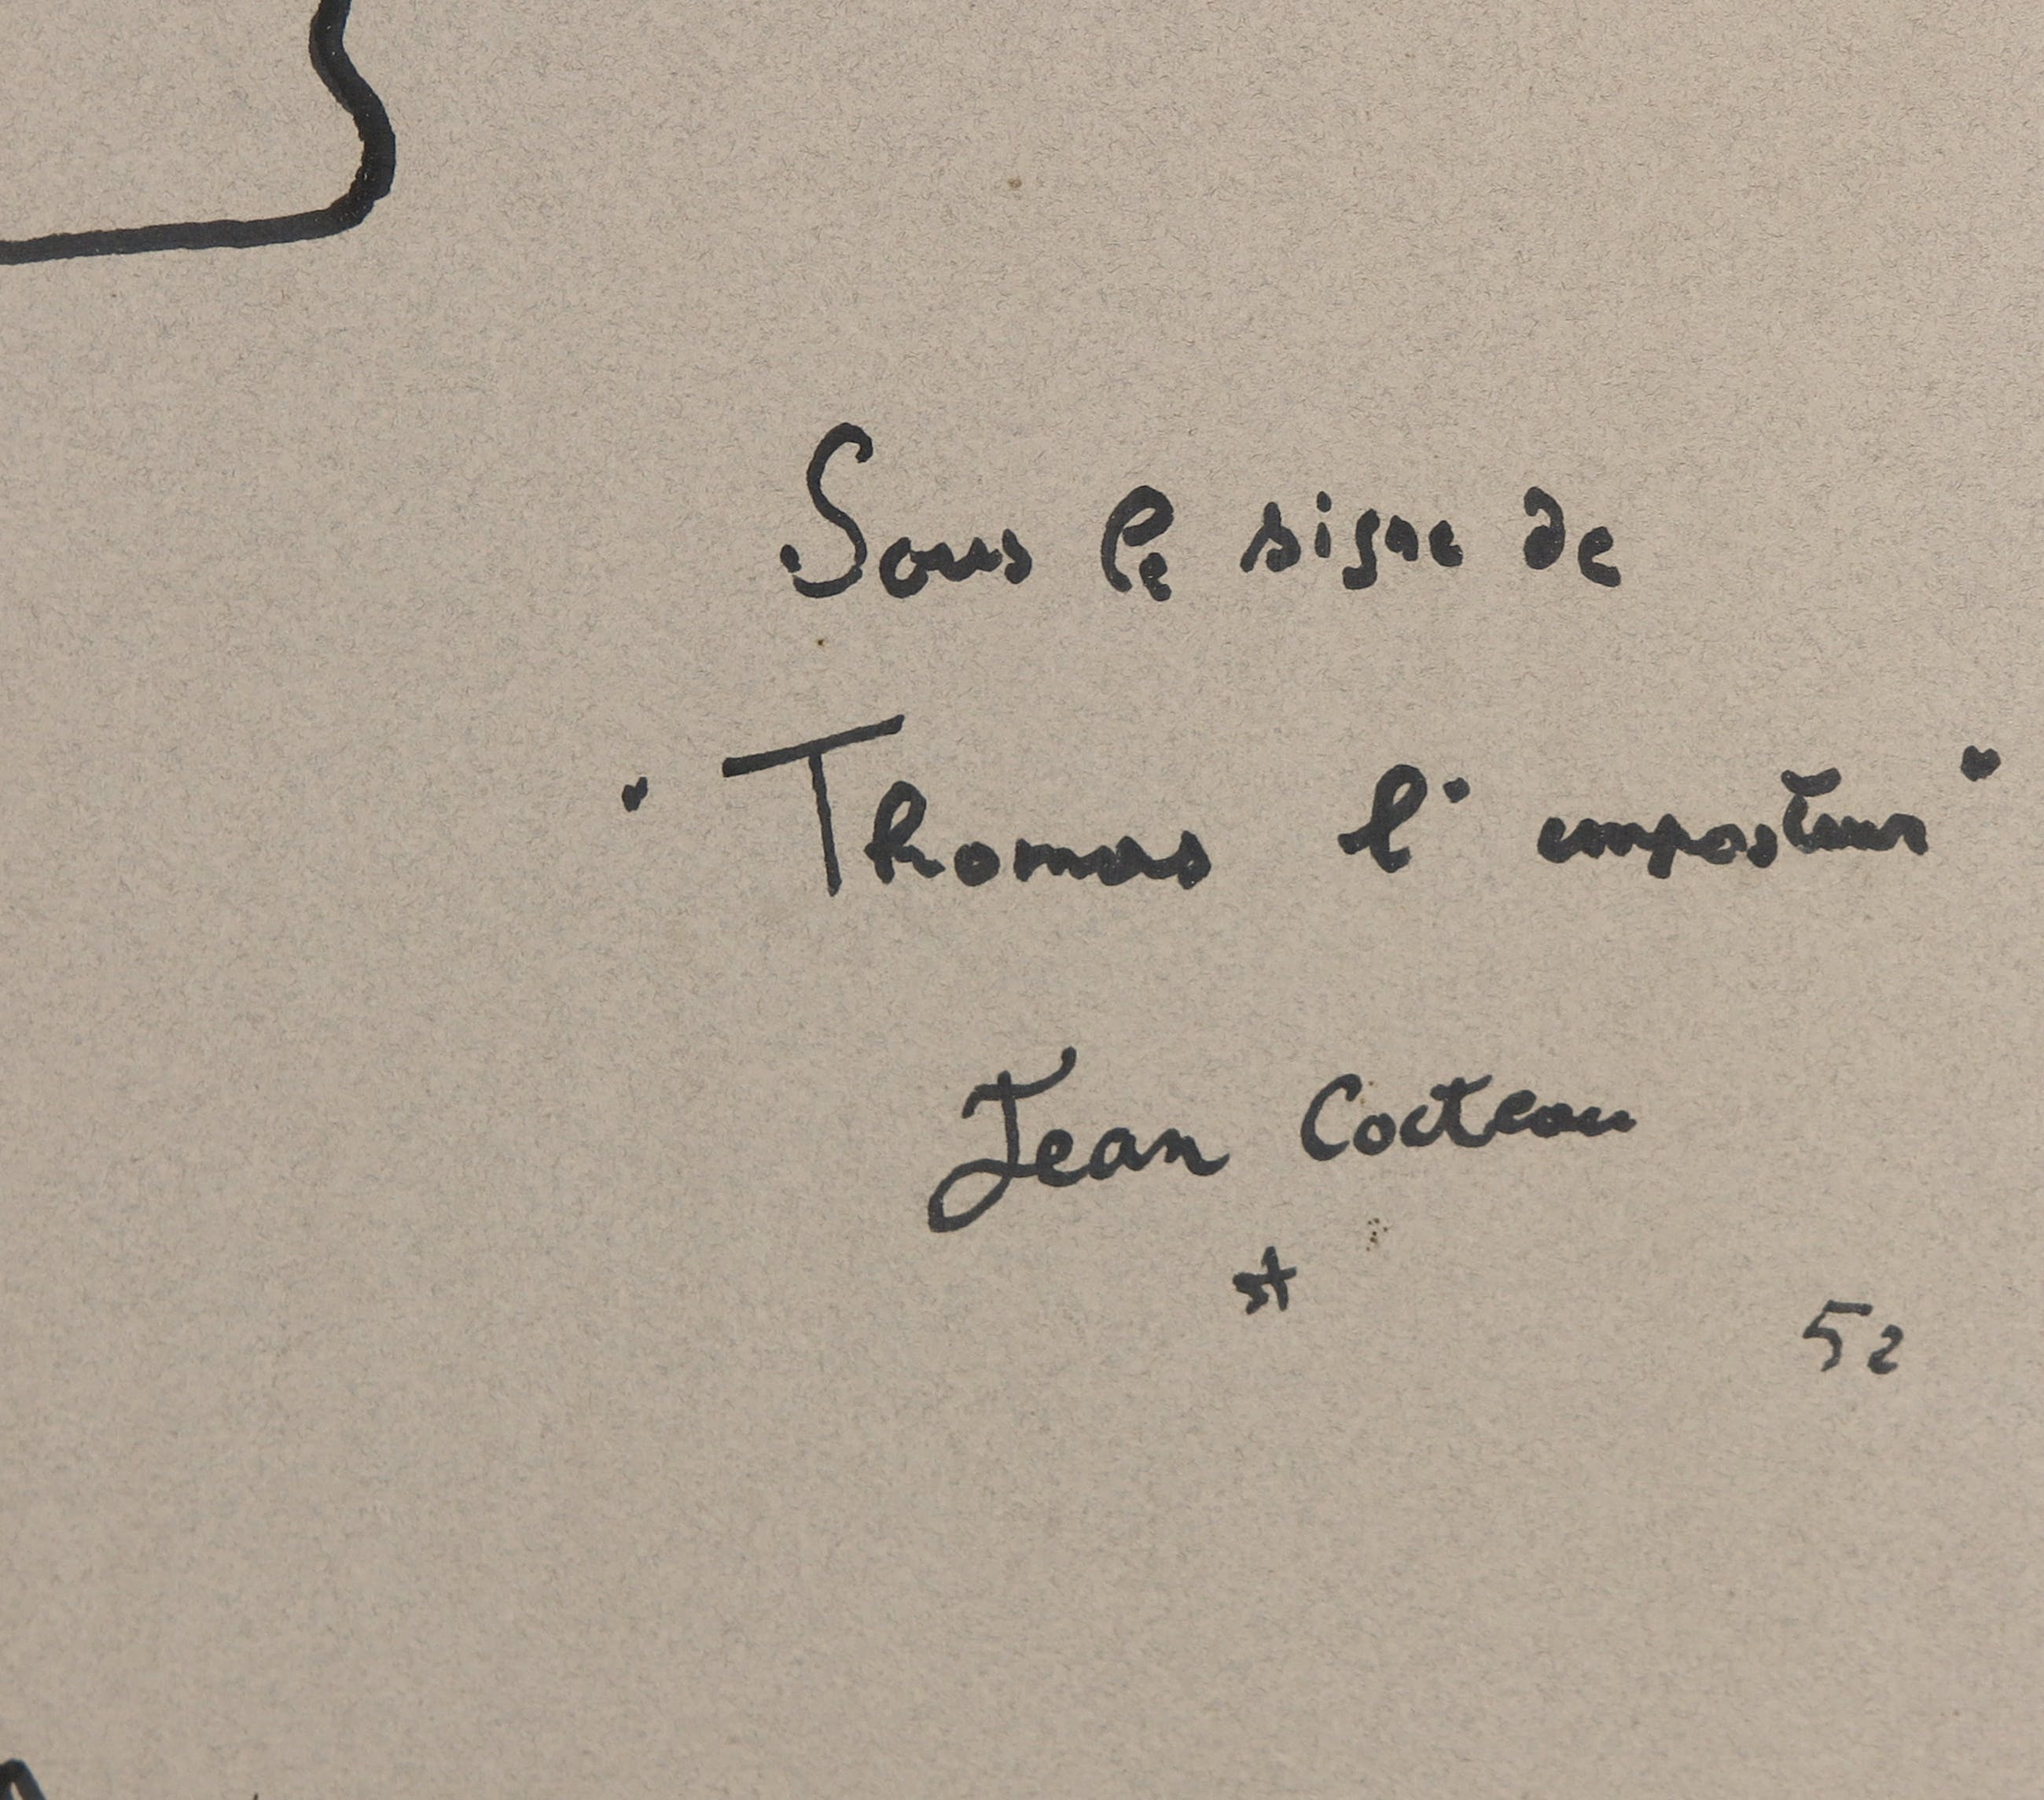 Sous le signe de
"Thomas l'imposteur"
Jean Cocteau
52